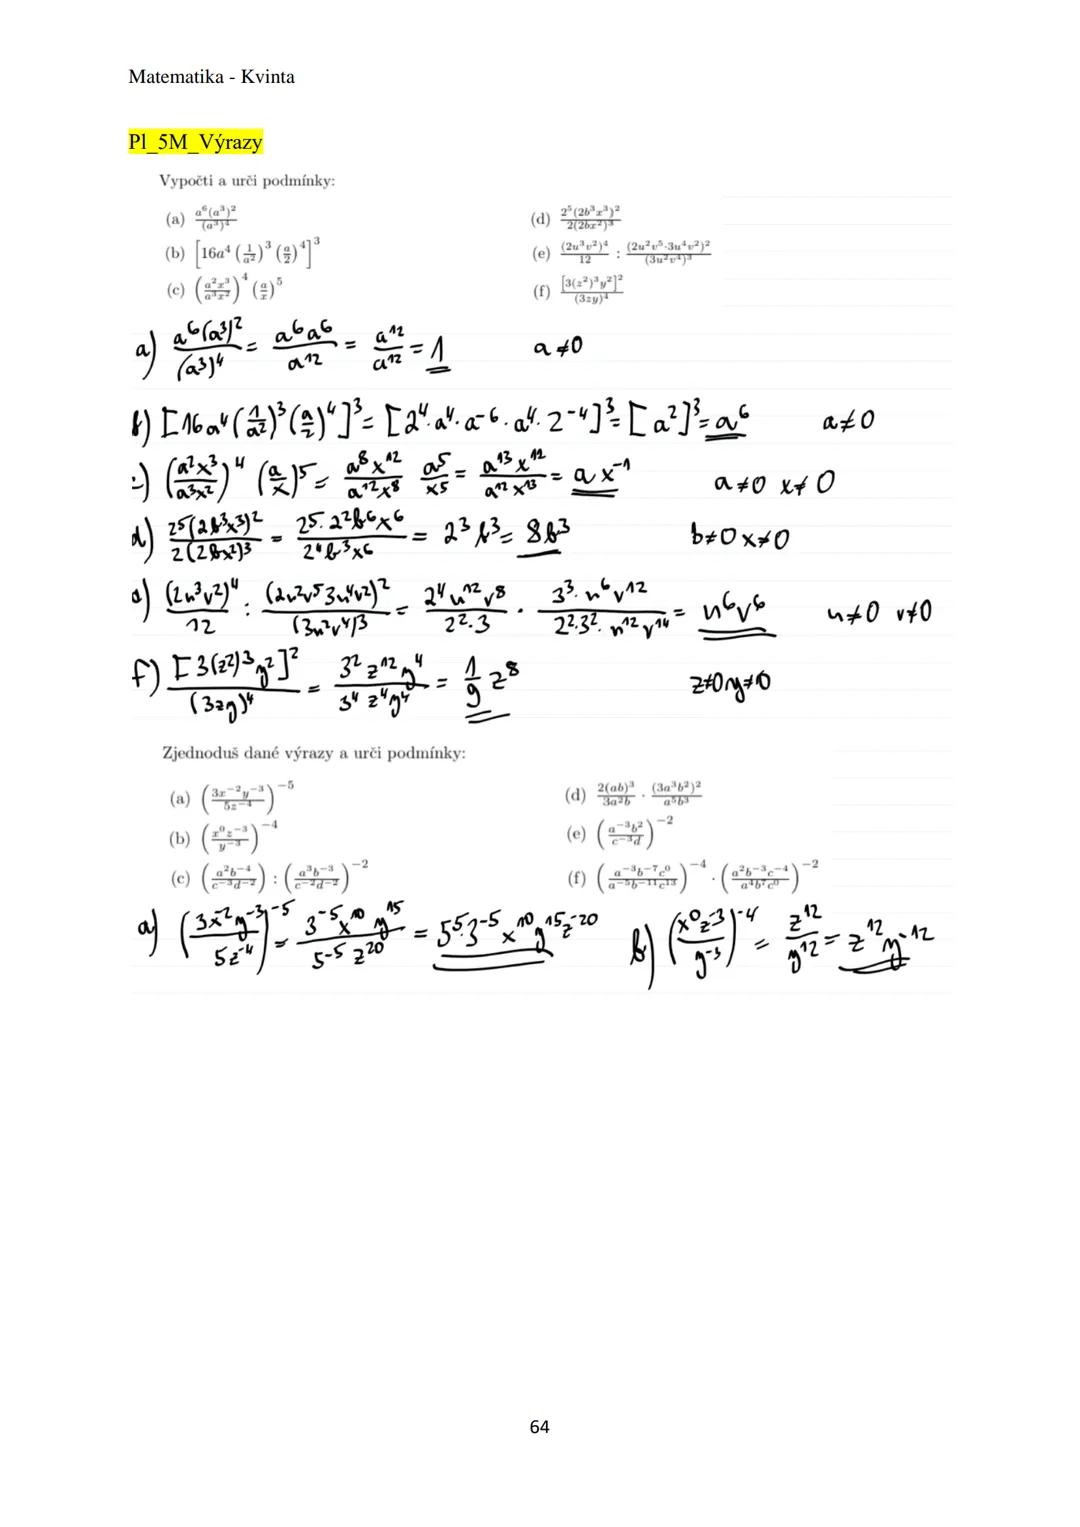 Matematika - Kvinta
Pl_5M_Výrazy
Vypočti a urči podmínky:
(a) a⁶(a³)²/(a³)⁴
(b) [16a⁴(1/a²)³(a/2)⁴]³
(c) (a²x³/a³x²)⁴(a/x)⁵
(d) 2⁵(2b³x³)²/2(2bx²)³
(e) (2u³v²)⁴/12 : (2u²v⁵·3u⁴v²)²/(3u²v⁴)³
(f) [3(z²)³y²]²/(3zy)⁴
a) a⁶(a³)²/(a³)⁴ = a⁶a⁶/a¹² = a¹²/a¹² = 1 a≠0
b) [16a⁴(1/a²)³(a/2)⁴]³ = [2⁴·a⁴·a⁻⁶·a⁴·2⁻⁴]³ = [a²]³ = a⁶ a≠0
c) (a²x³/a³x²)⁴ (a/x)⁵ = a⁸x¹²/a¹²x⁸ a⁵/x⁵ = a¹³x¹²/a¹²x¹³ = ax⁻¹ a≠0 x≠0
d) 2⁵(2b³x³)²/2(2bx²)³ = 2⁵·2²b⁶x⁶/2⁴b³x⁶ = 2³b³ = 8b³ b≠0 x≠0
e) (2u³v²)⁴/12 : (2u²v⁵3u⁴v²)²/(3u²v⁴)³ = 2⁴u¹²v⁸/2²·3 · 3³·u⁶v¹²/2²·3²·u¹²v¹⁴ = u⁶v⁶ u≠0 v≠0
f) [3(z²)³y²]²/(3zy)⁴ = 3²z¹²y⁴/3⁴z⁴y⁴ = 1/9 z⁸ z≠0 y≠0
Zjednoduš dané výrazy a urči podmínky:
(a) (3x⁻²y⁻³/5z⁻⁴)⁻⁵
(b) (x⁰z⁻³/y⁻³)⁻⁴
(c) (a²b⁻⁴/c⁻³d⁻²) : (a³b⁻³/c⁻²d⁻²)⁻²
(d) 2(ab)³/3a²b · (3a³b²)²/a⁵b³
(e) (a⁻³b²/c⁻³d)⁻²
(f) (a⁻³b⁻⁷c⁰/a⁻⁵b⁻¹¹c¹³)⁻⁴ · (a²b⁻³c⁻⁴/a⁴b⁷c⁰)⁻²
a) (3x⁻²y⁻³/5z⁻⁴)⁻⁵ = 3⁻⁵x¹⁰y¹⁵/5⁻⁵z²⁰ = 5⁵·3⁻⁵x¹⁰y¹⁵z⁻²⁰ b) (x⁰z⁻³/y⁻³)⁻⁴ = z¹²/y¹² = z¹²y⁻¹²
64